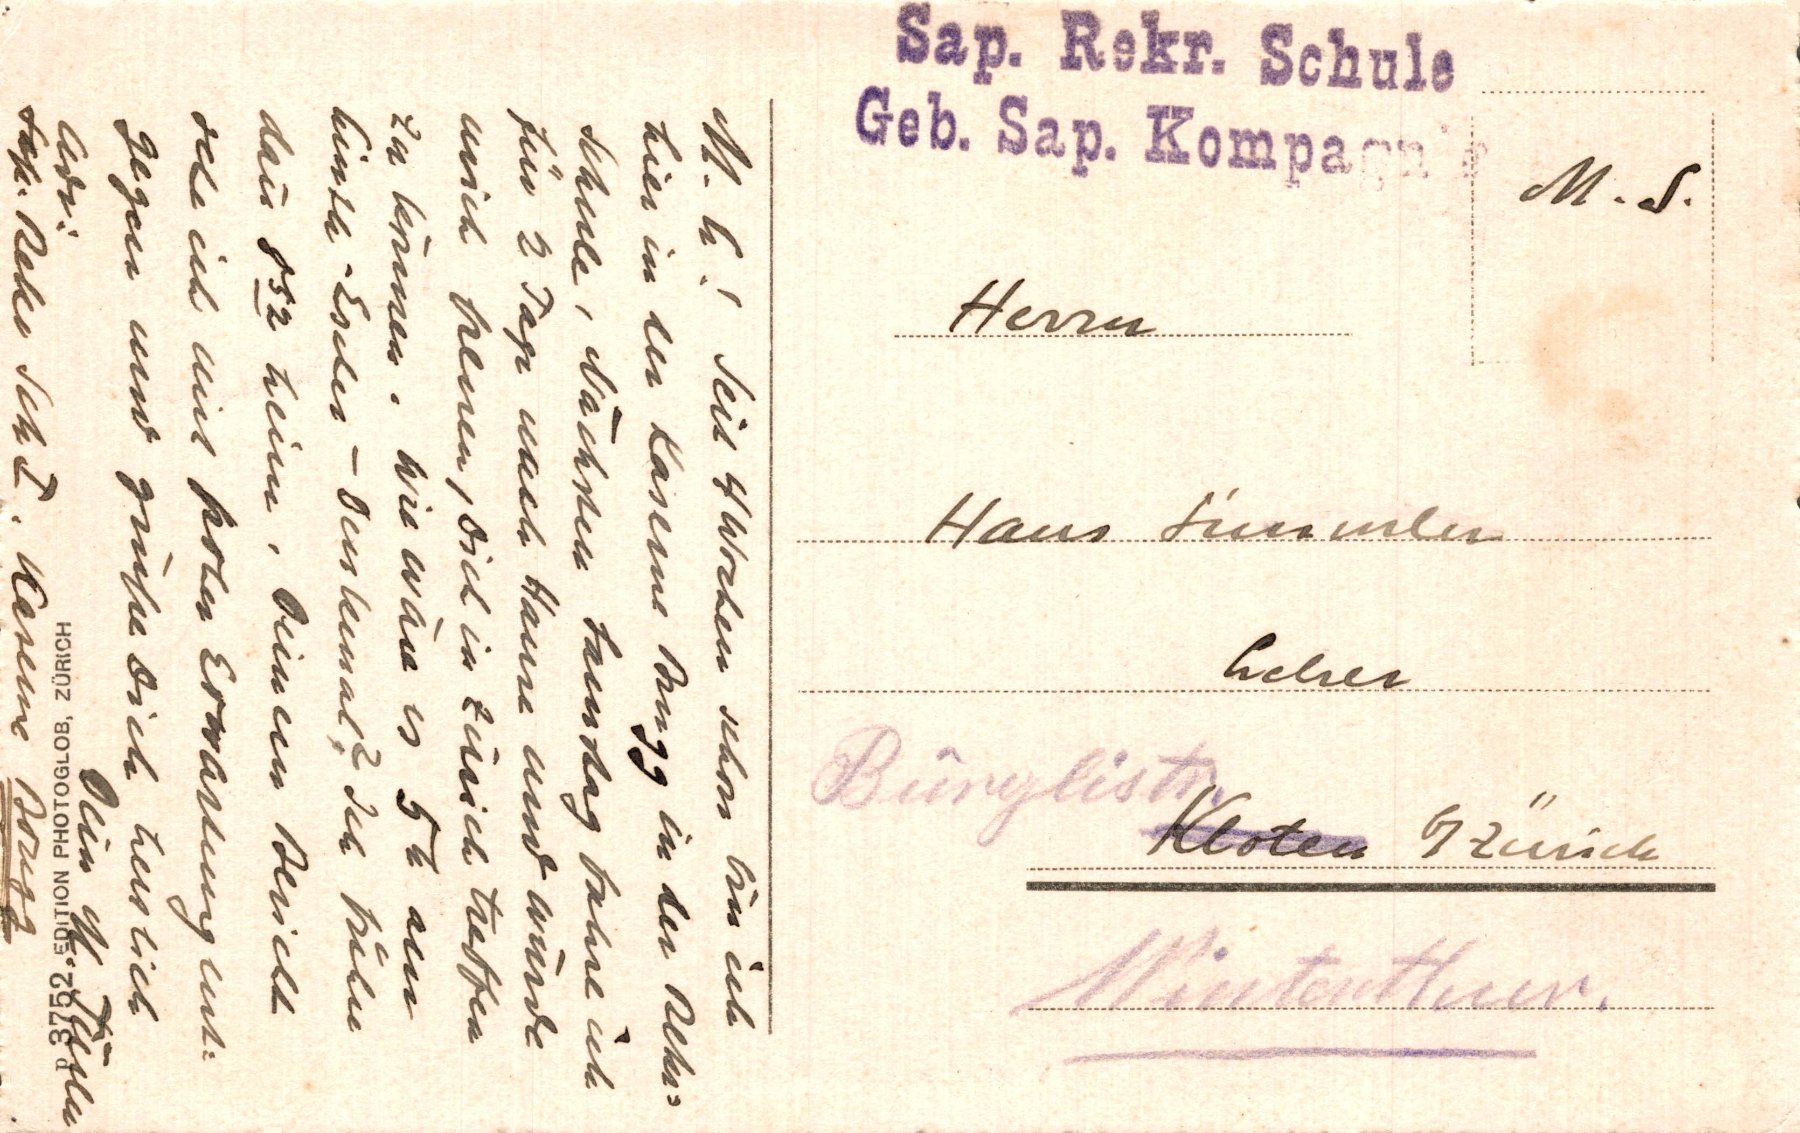 Sap. Rekr. Schule
Geb. Sap. Kompagnie
M. S.
Herrn
Hans
Lehrer
Bürglistr.
Kloten b/ Zürich
Winterthur.
M. L.! Seit 4 Wochen schon bin ich
hier in der Kaserne Brugg in der Rekr.=
schule, Nächsten Samstag fahre ich
für 2 Tage nach Hause und würde
mich freuen, Dich in Zürich treffen
zu können. Wie wäre es 5h am
- Escher - Denkmal? Ich führe
dann 8 52 heim. Deinem Bericht
sehe ich mit froher Erwartung ent:
gegen und grüsse Dich herzlich
Dein H.
Adr:
Sap. Rekr Sch I. Kaserne Brugg
P 3752. EDITION PHOTOGLOB, ZÜRICH